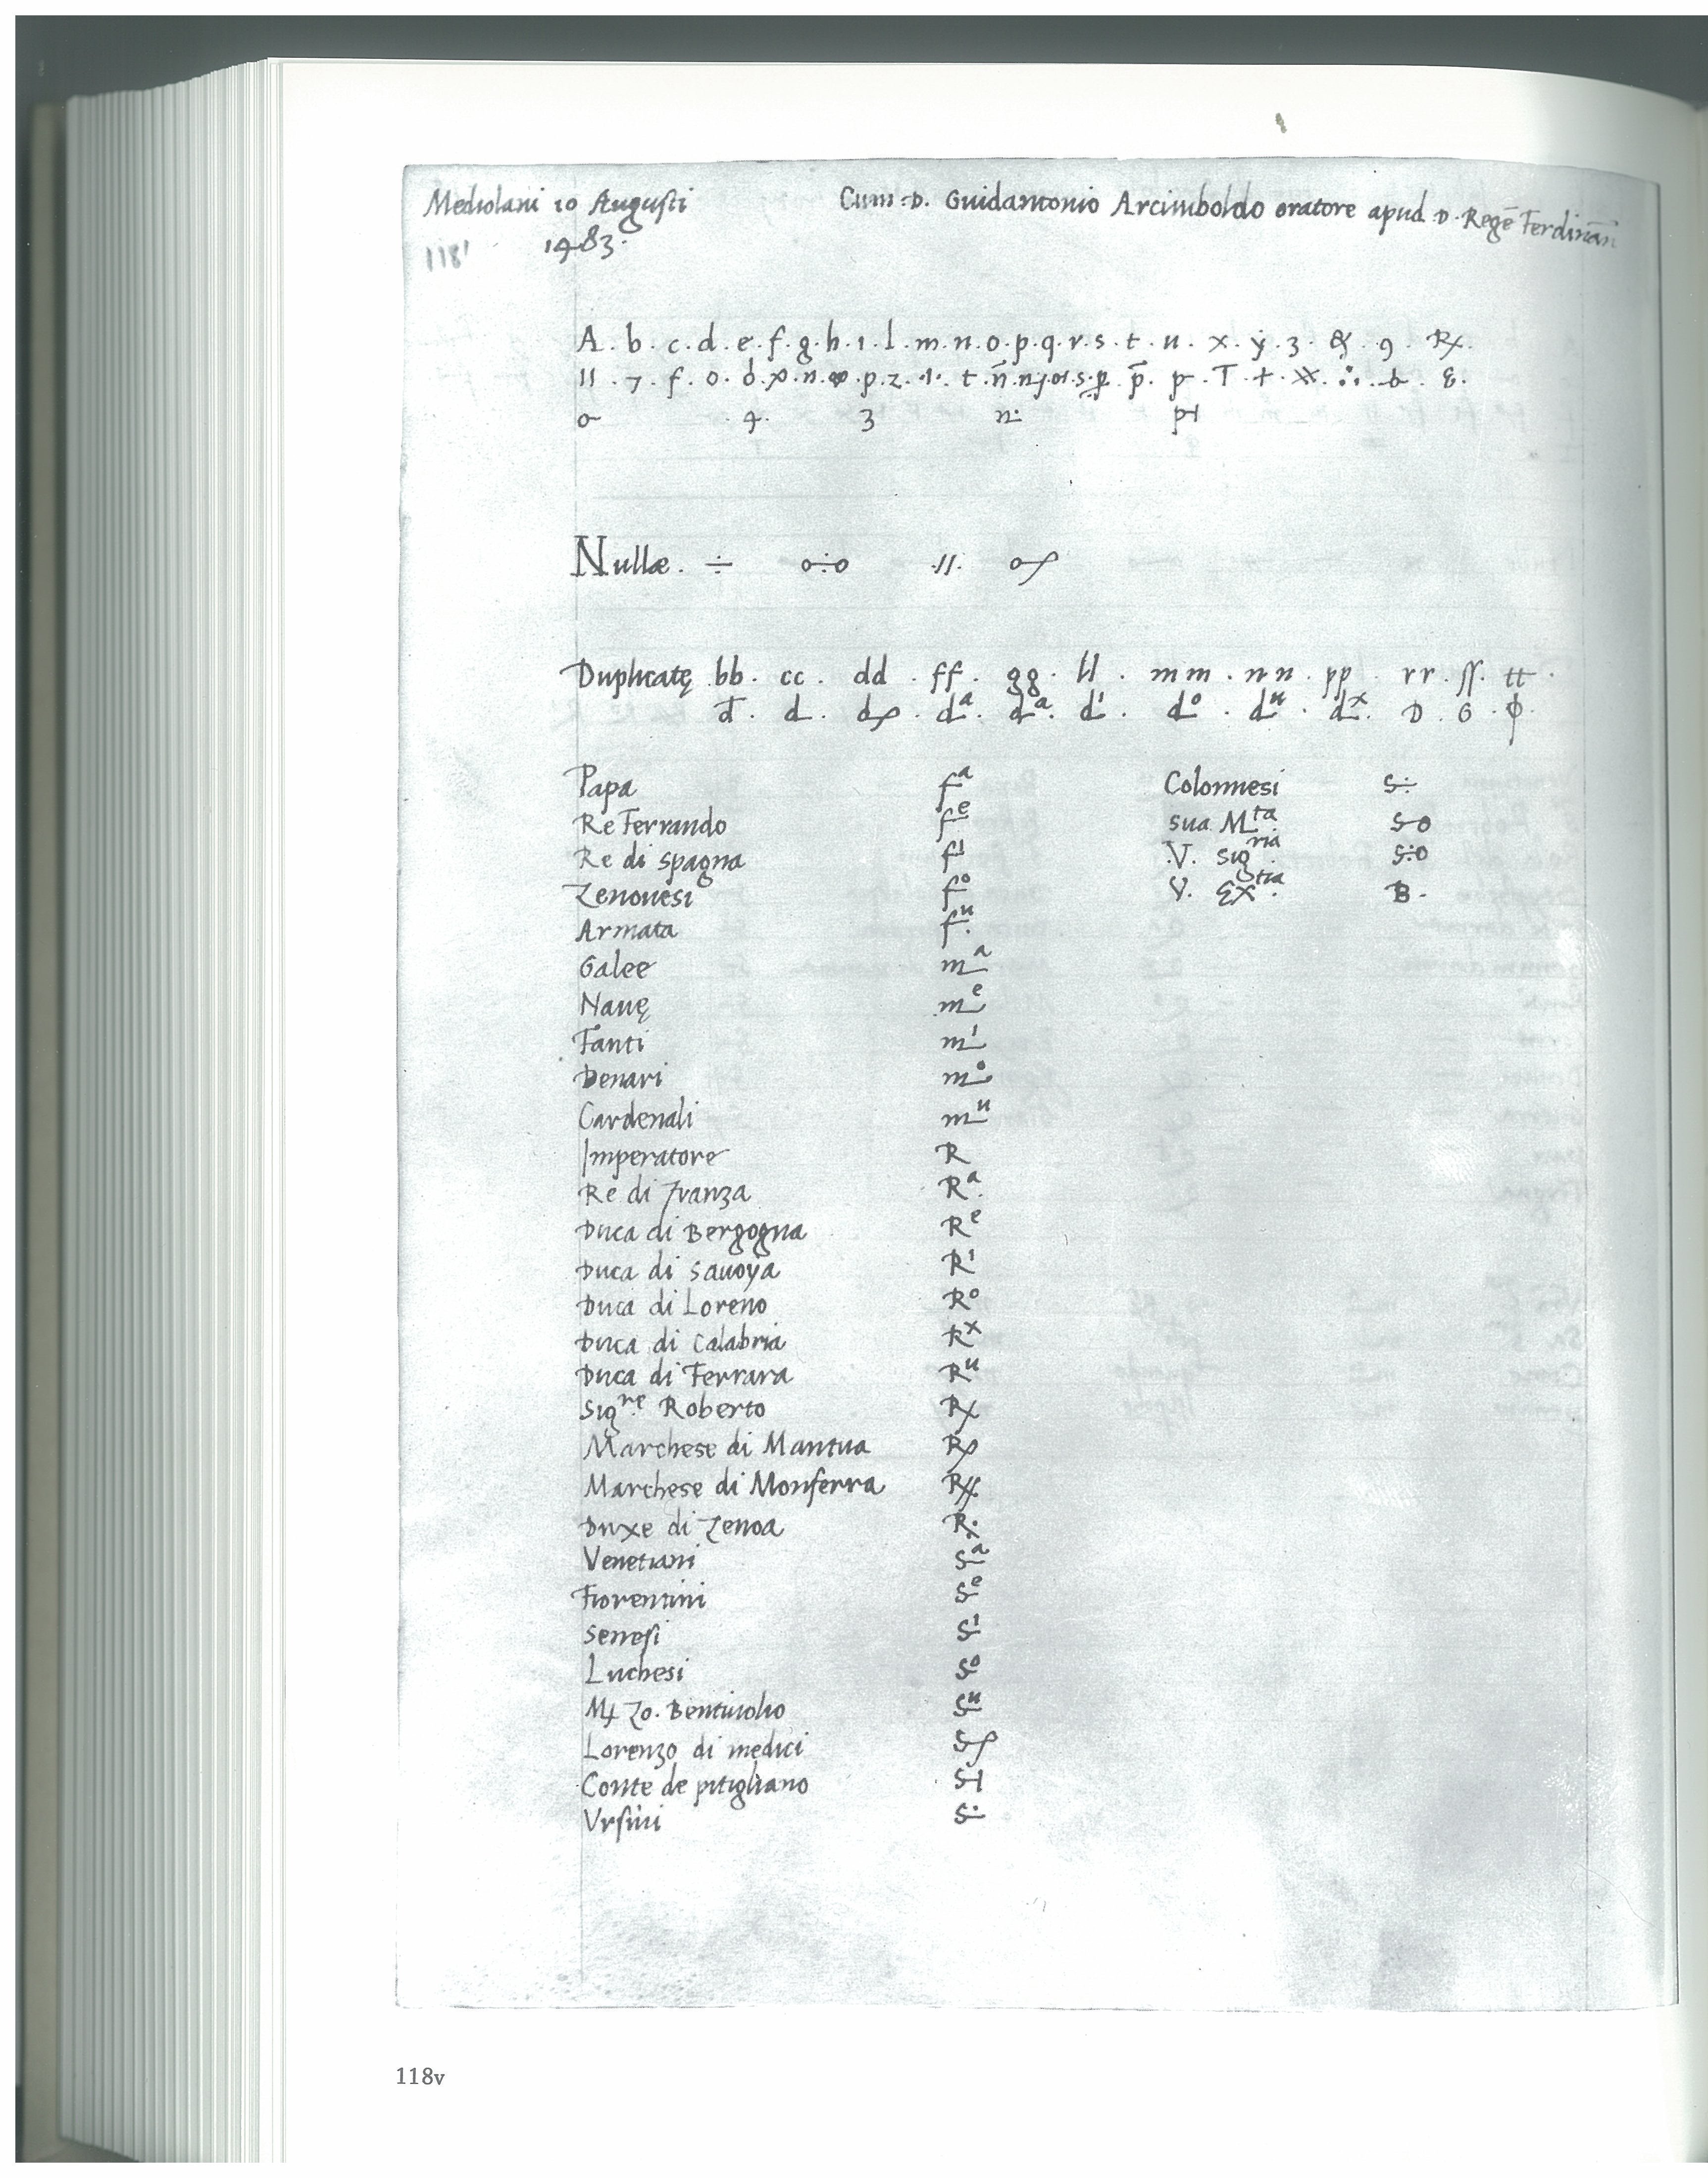 Mediolani 10 Augusti
1483.
Cum .D. Guidantonio Arcimboldo oratore apud .D. Regē Ferdinan̄
118'
A . b . c . d . e . f . g . h . i . l . m . n . o . p . q . r . s . t . u . x . y . 3 . & . 9 . Rx.
Nullæ . ÷ o÷o ·//·
Duplicatę bb . cc . dd . ff . gg . ll . mm . nn . pp . rr . ſſ . tt .
Papa fᵃ
Re Ferrando fᵉ
Re di Spagna fⁱ
Zenouesi fᵒ
Armata fᵘ
Galee mᵃ
Nauę mᵉ
Fanti mⁱ
Denari mᵒ
Cardenali mᵘ
Imperatore R
Re di Franza Rᵃ
Duca di Bergogna Rᵉ
Duca di Sauoya Rⁱ
Duca di Loreno Rᵒ
Duca di Calabria Rˣ
Duca di Ferrara Rᵘ
Sigʳᵉ Roberto Rx
Marchese di Mantua
Marchese di Monferra
Duxe di Zenoa
Venetiani Sᵃ
Fiorentini Sᵉ
Senesi Sⁱ
Luchesi Sᵒ
Zo. Bentiuolio Sᵘ
Lorenzo di medici
Conte de pitigliano
Vrsini S·
Colonnesi S÷
sua Mᵗᵃ S-o
.V. sigʳⁱᵃ. S÷o
V. Exᵗⁱᵃ. B.
118v